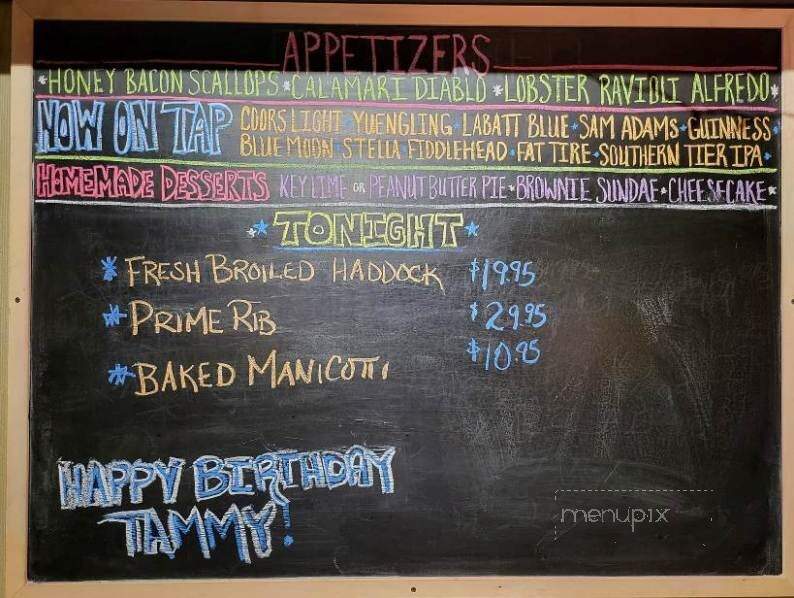 APPETIZERS
*HONEY BACON SCALLOPS*CALAMARI DIABLO*LOBSTER RAVIOLI ALFREDO*
NOW ON TAP COORS LIGHT*YUENGLING*LABATT BLUE*SAM ADAMS*GUINNESS*
BLUE MOON*STELLA*FIDDLEHEAD*FAT TIRE*SOUTHERN TIER IPA*
HOMEMADE DESSERTS KEY LIME OR PEANUT BUTTER PIE*BROWNIE SUNDAE*CHEESECAKE*
*TONIGHT*
*FRESH BROILED HADDOCK $19.95
*PRIME RIB $29.95
*BAKED MANICOTTI $10.95
HAPPY BIRTHDAY
TAMMY!
menupix